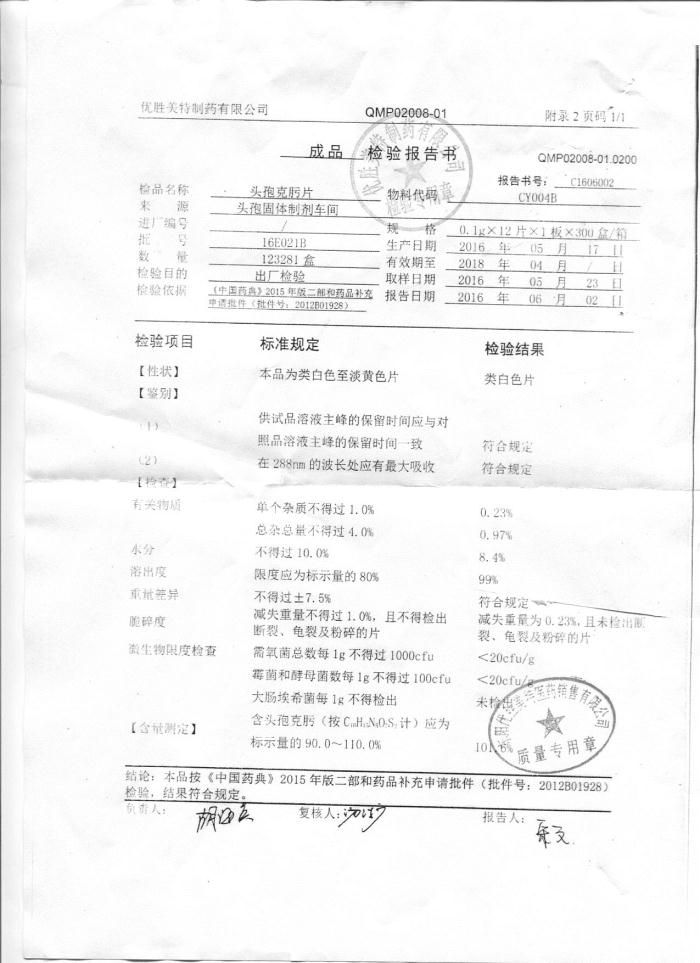 优胜美特制药有限公司 QMP02008-01 附录 2 页码 1/1
成品 检验报告书 QMP02008-01.0200
报告书号: C1606002
检品名称 头孢克肟片 物料代码 CY004B
来 源 头孢固体制剂车间
进厂编号 / 规 格 0.1g×12 片×1 板×300 盒/箱
批 号 16E021B 生产日期 2016 年 05 月 17 日
数 量 123281 盒 有效期至 2018 年 04 月 / 日
检验目的 出厂检验 取样日期 2016 年 05 月 23 日
检验依据 《中国药典》2015 年版二部和药品补充 报告日期 2016 年 06 月 02 日
申请批件（批件号: 2012B01928）
检验项目 标准规定 检验结果
【性状】 本品为类白色至淡黄色片 类白色片
【鉴别】
(1) 供试品溶液主峰的保留时间应与对
照品溶液主峰的保留时间一致 符合规定
(2) 在 288nm 的波长处应有最大吸收 符合规定
【检查】
有关物质 单个杂质不得过 1.0% 0.23%
总杂总量不得过 4.0% 0.97%
水分 不得过 10.0% 8.4%
溶出度 限度应为标示量的 80% 99%
重量差异 不得过±7.5% 符合规定
脆碎度 减失重量不得过 1.0%，且不得检出 减失重量为 0.23%,且未检出断
断裂、龟裂及粉碎的片 裂、龟裂及粉碎的片
微生物限度检查 需氧菌总数每 1g 不得过 1000cfu <20cfu/g
霉菌和酵母菌数每 1g 不得过 100cfu <20cfu/g
大肠埃希菌每 1g 不得检出 未检出
【含量测定】 含头孢克肟（按 计）应为
标示量的 90.0～110.0% 101.6%
质量专用章
结论: 本品按《中国药典》2015 年版二部和药品补充申请批件（批件号: 2012B01928）
检验，结果符合规定。
负责人: 复核人: 报告人: